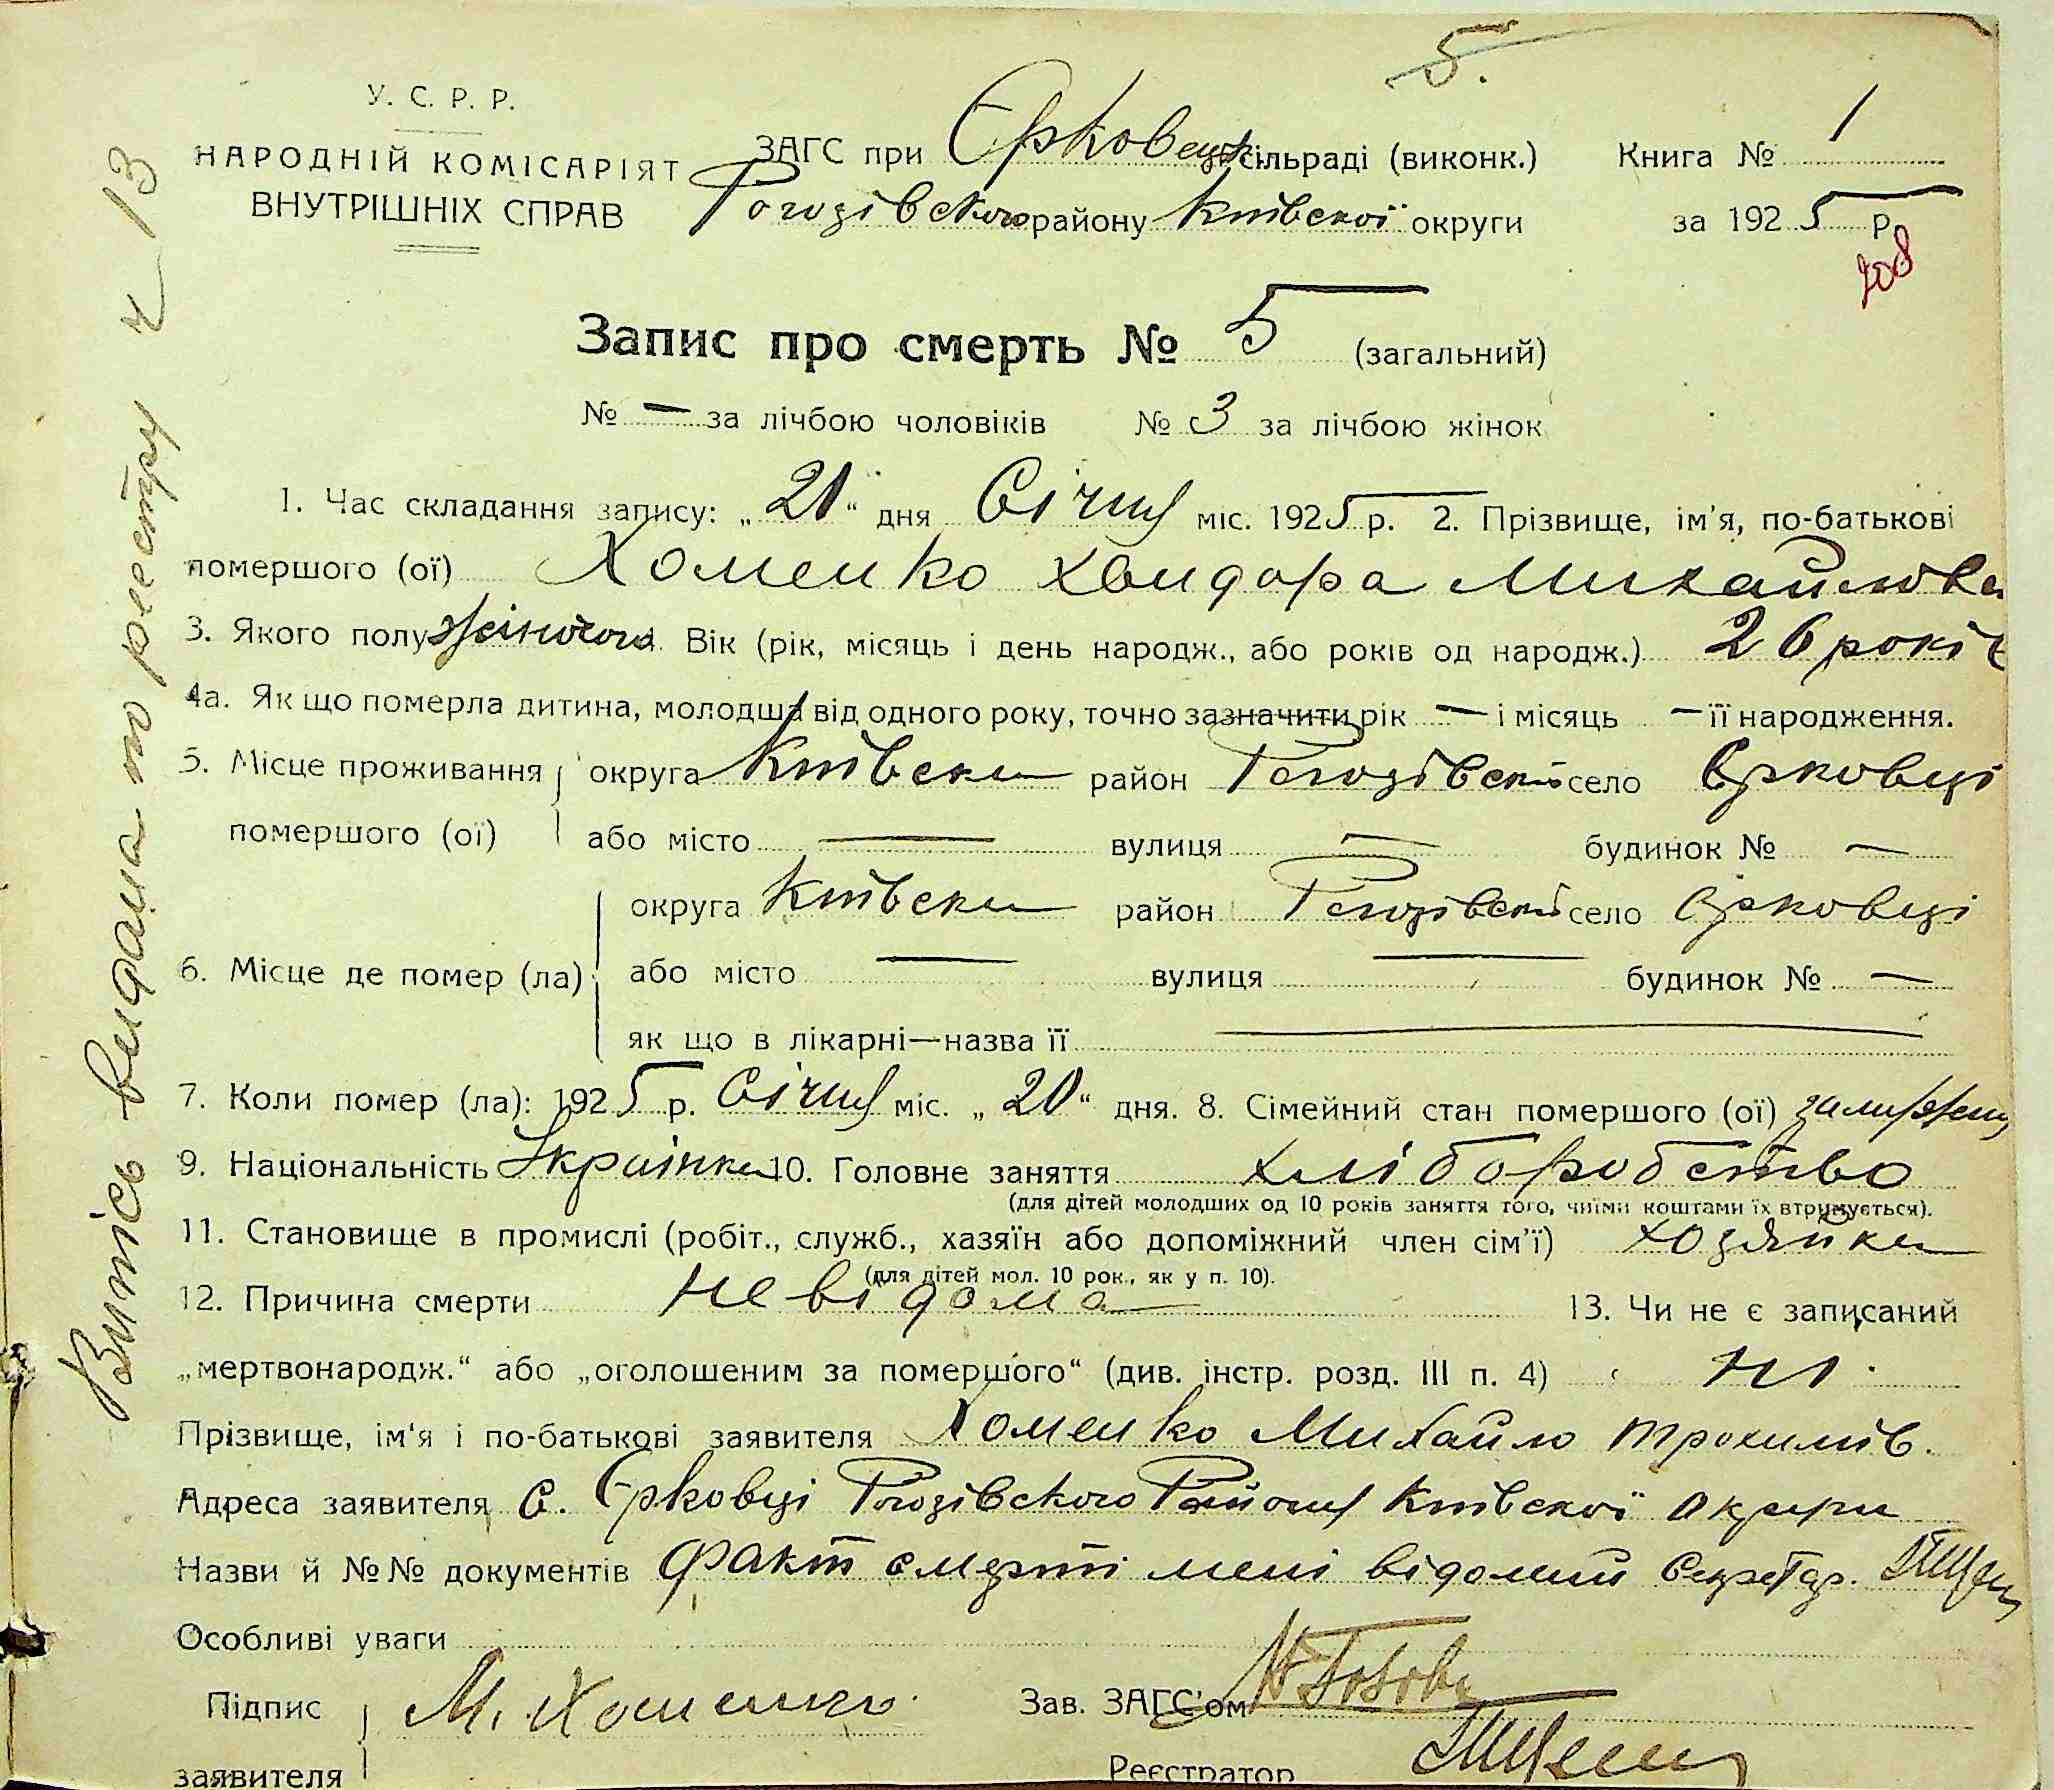 5.
У. С. Р. Р.
НАРОДНІЙ КОМІСАРІЯТ
ВНУТРІШНІХ СПРАВ
ЗАГС при Єрковецьк. сільраді (виконк.)
Рогозівского району Київскої округи
Книга № 1
за 1925 р.
208
Запис про смерть № 5 (загальний)
№ — за лічбою чоловіків № 3 за лічбою жінок
1. Час складання запису: „21“ дня Січня міс. 1925 р. 2. Прізвище, ім'я, по-батькові
помершого (ої) Хоменко Хвидора Михайловна
3. Якого полу жіночого Вік (рік, місяць і день народж., або років од народж.) 26 років
4а. Як що померла дитина, молодша від одного року, точно зазначити рік — і місяць — її народження.
5. Місце проживання округа Київска район Рогозівский село Єрковці
помершого (ої) або місто — вулиця — будинок № —
округа Київска район Рогозівский село Єрковці
6. Місце де помер (ла) або місто — вулиця — будинок № —
як що в лікарні—назва її —
7. Коли помер (ла): 1925 р. Січня міс. „20“ дня. 8. Сімейний стан помершого (ої) замужем
9. Національність Українка 10. Головне заняття хліборобство
(для дітей молодших од 10 років заняття того, чиїми коштами їх втримується).
11. Становище в промислі (робіт., служб., хазяїн або допоміжний член сім'ї) хозяйка
(для дітей мол. 10 рок., як у п. 10).
12. Причина смерти невідома 13. Чи не є записаний
„мертвонародж.“ або „оголошеним за помершого“ (див. інстр. розд. III п. 4) ні.
Прізвище, ім'я і по-батькові заявителя Хоменко Михайло Трохимів.
Адреса заявителя с. Єрковці Рогозівского Району Київскої округи
Назви й №№ документів Факт смерти мені відомий Секретар.
Особливі уваги
Підпис заявителя М. Хоменко.
Зав. ЗАГС'ом
Реєстратор
Витісь видана по реєстру ч 13